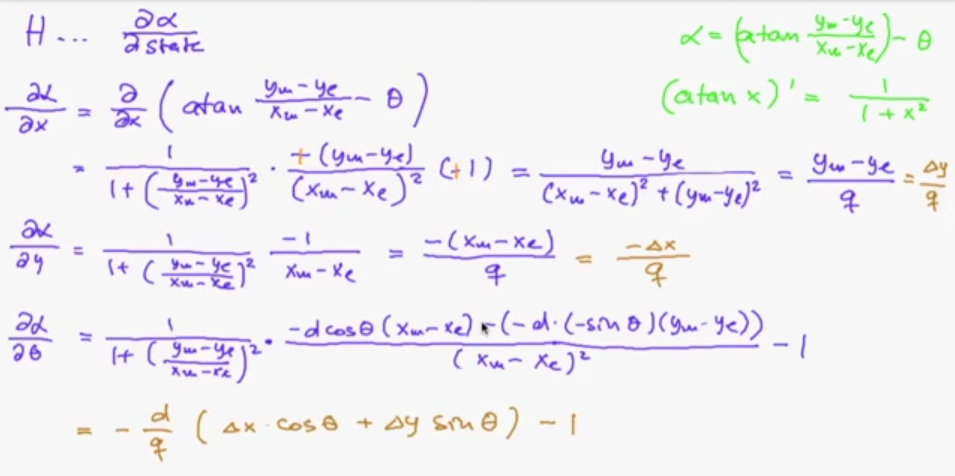 H ... ∂α/∂state
α = (atan (y_m - y_e)/(x_m - x_e)) - θ
(atan x)' = 1/(1 + x²)
∂α/∂x = ∂/∂x (atan (y_m - y_e)/(x_m - x_e) - θ)
= 1/(1 + ((y_m - y_e)/(x_m - x_e))²) · +(y_m - y_e)/(x_m - x_e)² (+1) = (y_m - y_e)/((x_m - x_e)² + (y_m - y_e)²) = (y_m - y_e)/q = Δy/q
∂α/∂y = 1/(1 + ((y_m - y_e)/(x_m - x_e))²) -1/(x_m - x_e) = -(x_m - x_e)/q = -Δx/q
∂α/∂θ = 1/(1 + ((y_m - y_e)/(x_m - x_e))²) · (-d cos θ (x_m - x_e) - (-d · (-sin θ)(y_m - y_e)))/(x_m - x_e)² - 1
= - d/q (Δx · cos θ + Δy sin θ) - 1